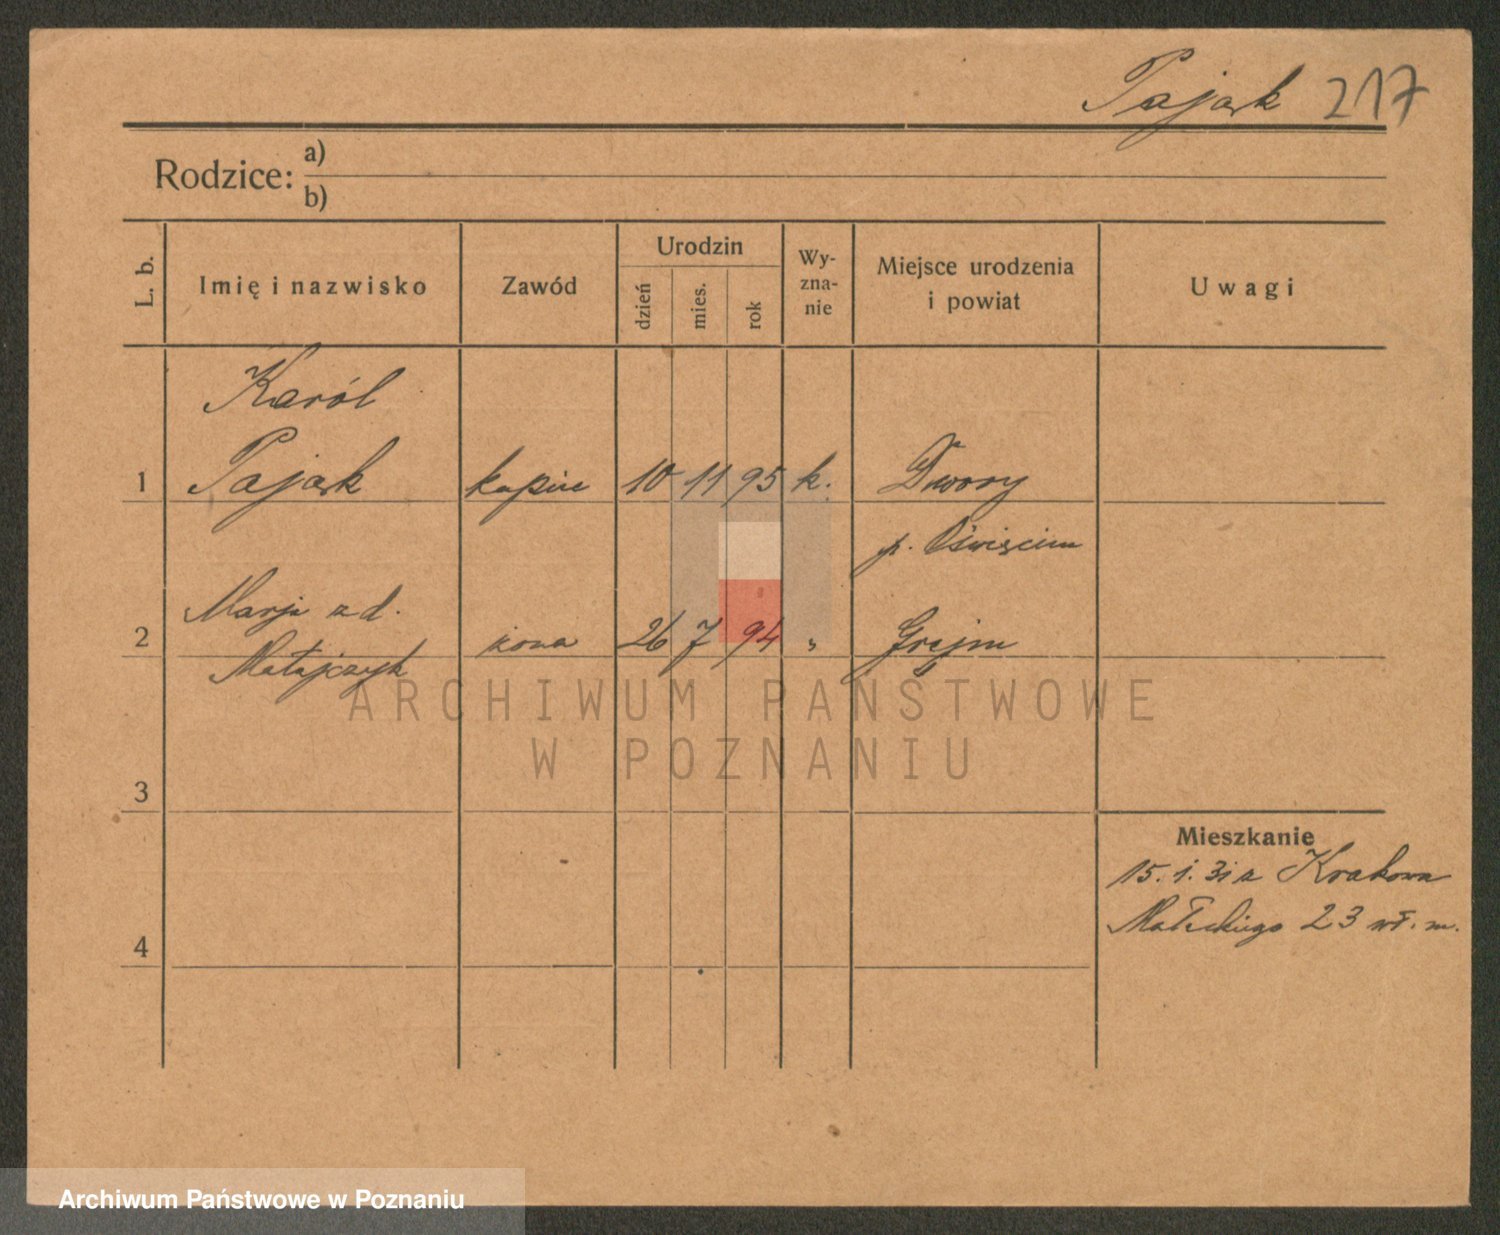 Pająk 217
Rodzice: a)
b)
L. b.
Imię i nazwisko
Zawód
Urodzin
dzień
mies.
rok
Wy-
zna-
nie
Miejsce urodzenia
i powiat
Uwagi
Karól
1 Pająk kupiec 10 11 95 k. Dwory
p. Oświęcim
Marja z d.
2 żona 26 7 94 „
Matajczyk
ARCHIWUM PAŃSTWOWE
W POZNANIU
3
Mieszkanie
15. 1. 31 z Krakowa
Małeckiego 23 wł. m.
4
Archiwum Państwowe w Poznaniu